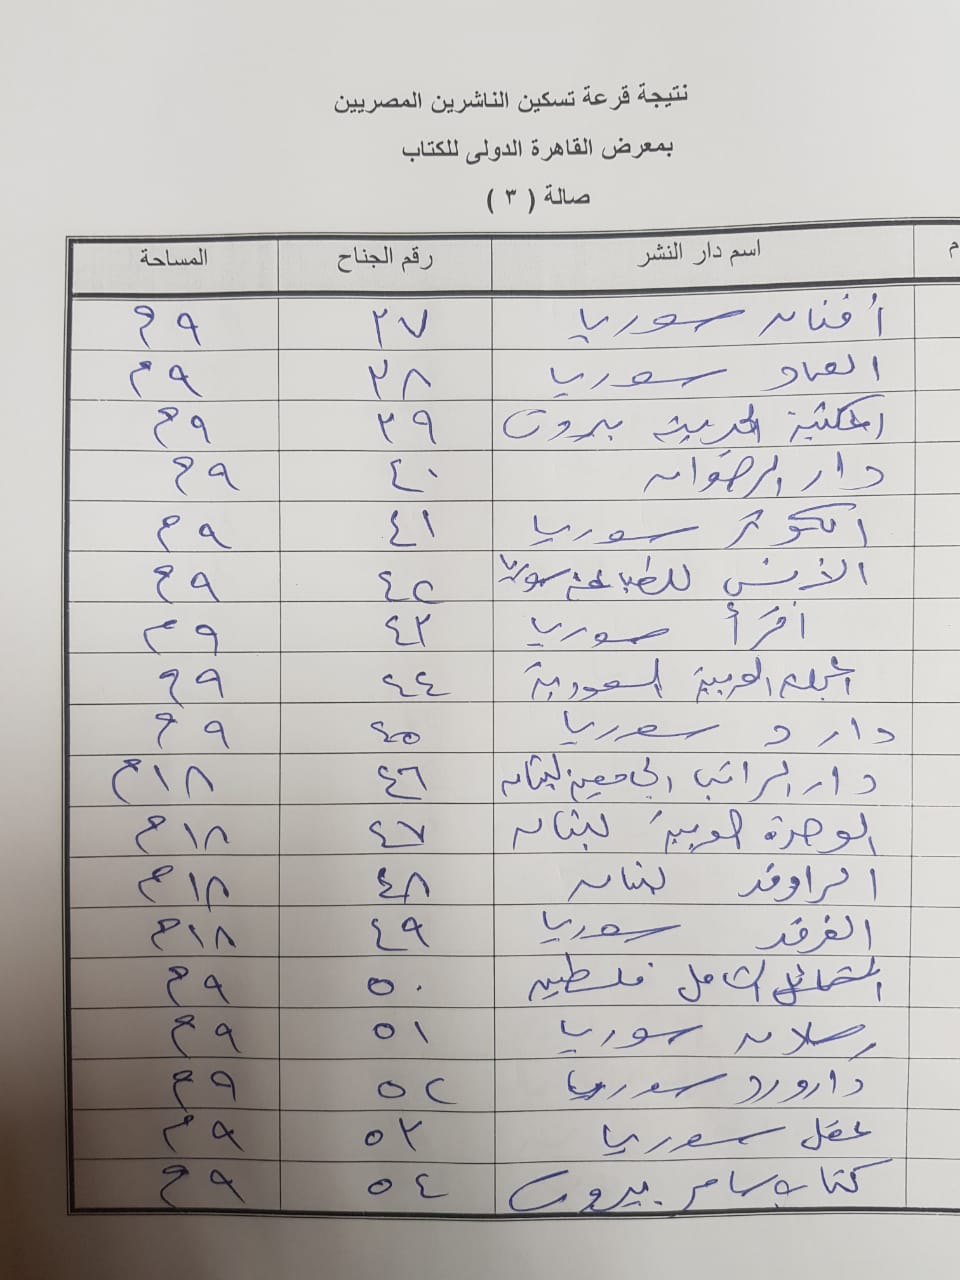 نتيجة قرعة تسكين الناشرين المصريين
بمعرض القاهرة الدولى للكتاب
صالة ( ٣ )
م اسم دار النشر رقم الجناح المساحة
أفنان سوريا ٣٧ ٩م
العماد سوريا ٣٨ ٩م
المكتبة الحديثة بيروت ٣٩ ٩م
دار الرضوان ٤٠ ٩م
الكوثر سوريا ٤١ ٩م
الأنس للطباعة سوريا ٤٢ ٩م
اقرأ سوريا ٤٣ ٩م
المجلة العربية السعودية ٤٤ ٩م
دار د سوريا ٤٥ ٩م
دار الراتب الجامعية لبنان ٤٦ ١٨م
الوحدة العربية لبنان ٤٧ ١٨م
الرافد لبنان ٤٨ ١٨م
الفرقد سوريا ٤٩ ١٨م
الشامل فلسطين ٥٠ ٩م
رسلان سوريا ٥١ ٩م
دار ورد سوريا ٥٢ ٩م
عقل سوريا ٥٣ ٩م
كتاب سامر بيروت ٥٤ ٩م